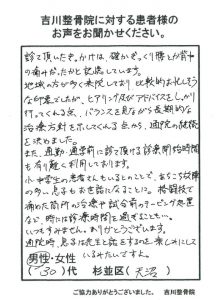 吉川整骨院に対する患者様の
お声をお聞かせください。
診て頂いたきっかけは、確かぎっくり腰とか背中
の痛みだったかと記憶しています。
地域の方が多く来院しており、比較的お忙しそう
な印象でしたが、ヒアリング及びアドバイスをしっかり
行ってくれる点、バランスを見ながら長期的な
治療方針を示してくれる点から、通院の継続
を決めました。
また、通勤・通学前に診て頂ける診療開始時間
も有り難く利用しております。
小中学生の患者さんもいるとのことで、あちこち故障
の多い息子もお世話になることに。格闘技で
痛めた箇所の治療や試合前のテーピング処置
など、時には診療時間を過ぎることも…。
いつもすみません。ありがとうございます。
通院時、息子は先生と話をするのを楽しみにして
いるみたいですよ。
男性・女性
(30)代 杉並区(天沼)
ご協力ありがとうございました。 吉川整骨院